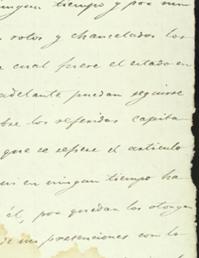 ningun tiempo y por nin
rotos y chancelados los
cual fuere el estado en
adelante puedan seguirse
los referidos capita
que se refiere el articulo
en ningun tiempo ha
él, por quedan los otorgan
de sus pretenciones con lo